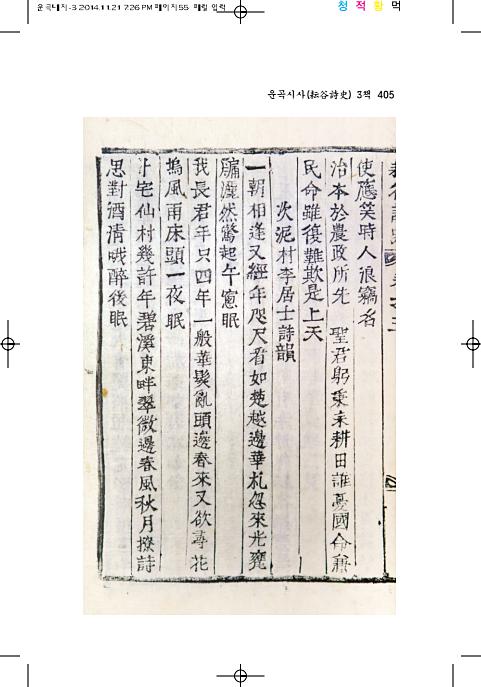 운곡내지-3 2014.11.21 7:26 PM 페이지55 매킬 입력
청 적 황 먹
운곡시사(耘谷詩史) 3책 405
使應笑時人浪竊名
治本於農政所先 聖君躬秉耒耕田誰憂國命兼
民命雖復難欺是上天
次泥村李居士詩韻
一朝相逢又經年咫尺看如楚越邊華札忽來光甕
牖灑然驚起午窓眠
我長君年只四年一般華鬢亂頭邊春來又欲尋花
塢風雨床頭一夜眠
卜宅仙村幾許年碧溪東畔翠微邊春風秋月撩詩
思對酒淸哦醉後眠